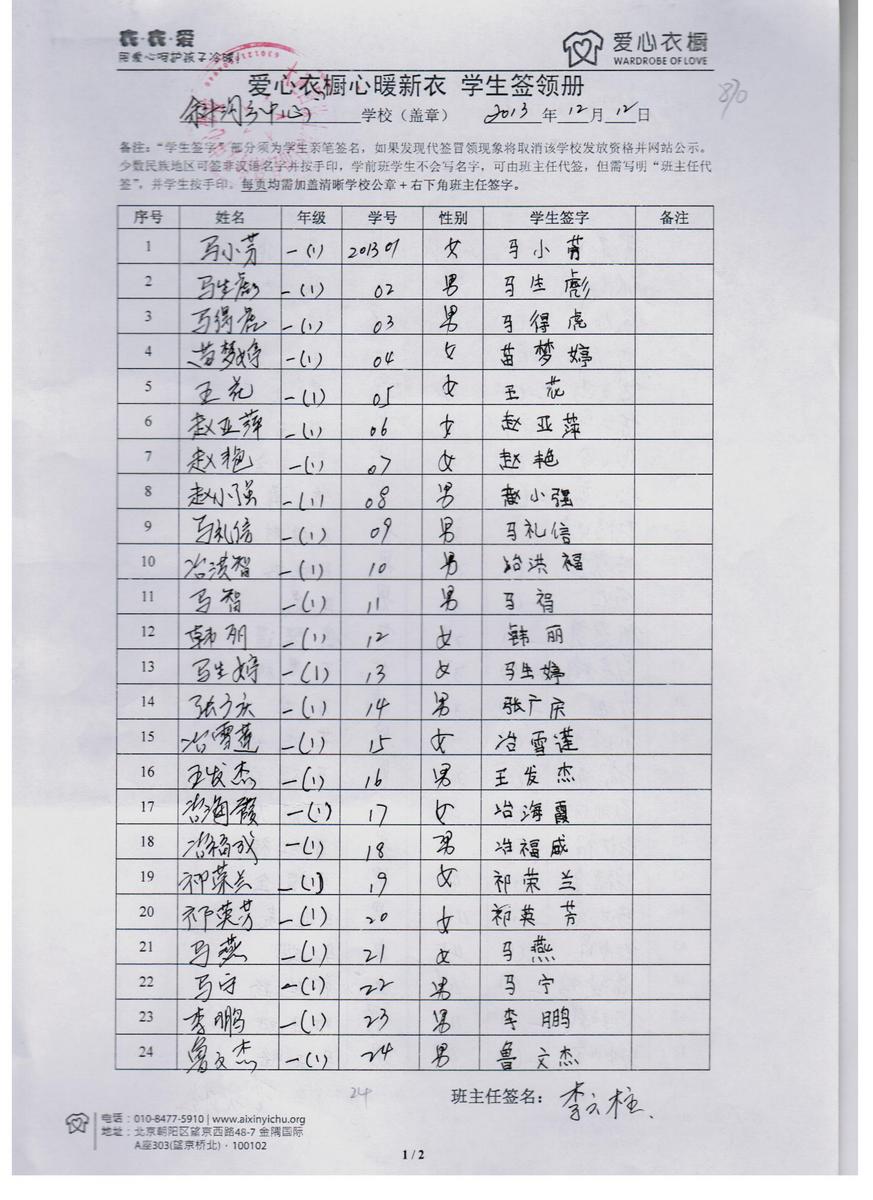 衣·衣·爱
用爱心呵护孩子冷暖!
爱心衣橱
WARDROBE OF LOVE
爱心衣橱心暖新衣 学生签领册
中心 学校（盖章） 2013 年 12 月 12 日
备注：“学生签字”部分须为学生亲笔签名，如果发现代签冒领现象将取消该学校发放资格并网站公示。
少数民族地区可签非汉语名字并按手印，学前班学生不会写名字，可由班主任代签，但需写明“班主任代
签”，并学生按手印。每页均需加盖清晰学校公章＋右下角班主任签字。
序号 姓名 年级 学号 性别 学生签字 备注
1 马小芳 一(1) 201301 女 马小芳
2 马生彪 一(1) 02 男 马生彪
3 马得虎 一(1) 03 男 马得虎
4 苗梦婷 一(1) 04 女 苗梦婷
5 王花 一(1) 05 女 王花
6 赵亚萍 一(1) 06 女 赵亚萍
7 赵艳 一(1) 07 女 赵艳
8 赵小强 一(1) 08 男 赵小强
9 马礼信 一(1) 09 男 马礼信
10 冶洪智 一(1) 10 男 冶洪福
11 马智 一(1) 11 男 马
12 韩丽 一(1) 12 女 韩丽
13 马生婷 一(1) 13 女 马生婷
14 张广庆 一(1) 14 男 张广庆
15 冶雪莲 一(1) 15 女 冶雪莲
16 王发杰 一(1) 16 男 王发杰
17 冶海霞 一(1) 17 女 冶海霞
18 冶福成 一(1) 18 男 冶福成
19 祁荣兰 一(1) 19 女 祁荣兰
20 祁英芳 一(1) 20 女 祁英芳
21 马燕 一(1) 21 女 马燕
22 马宁 一(1) 22 男 马宁
23 李鹏 一(1) 23 男 李鹏
24 鲁文杰 一(1) 24 男 鲁文杰
24
班主任签名： 李云柱
电话：010-8477-5910 | www.aixinyichu.org
地址：北京朝阳区望京西路48-7 金隅国际
A座303(望京桥北)·100102
1 / 2